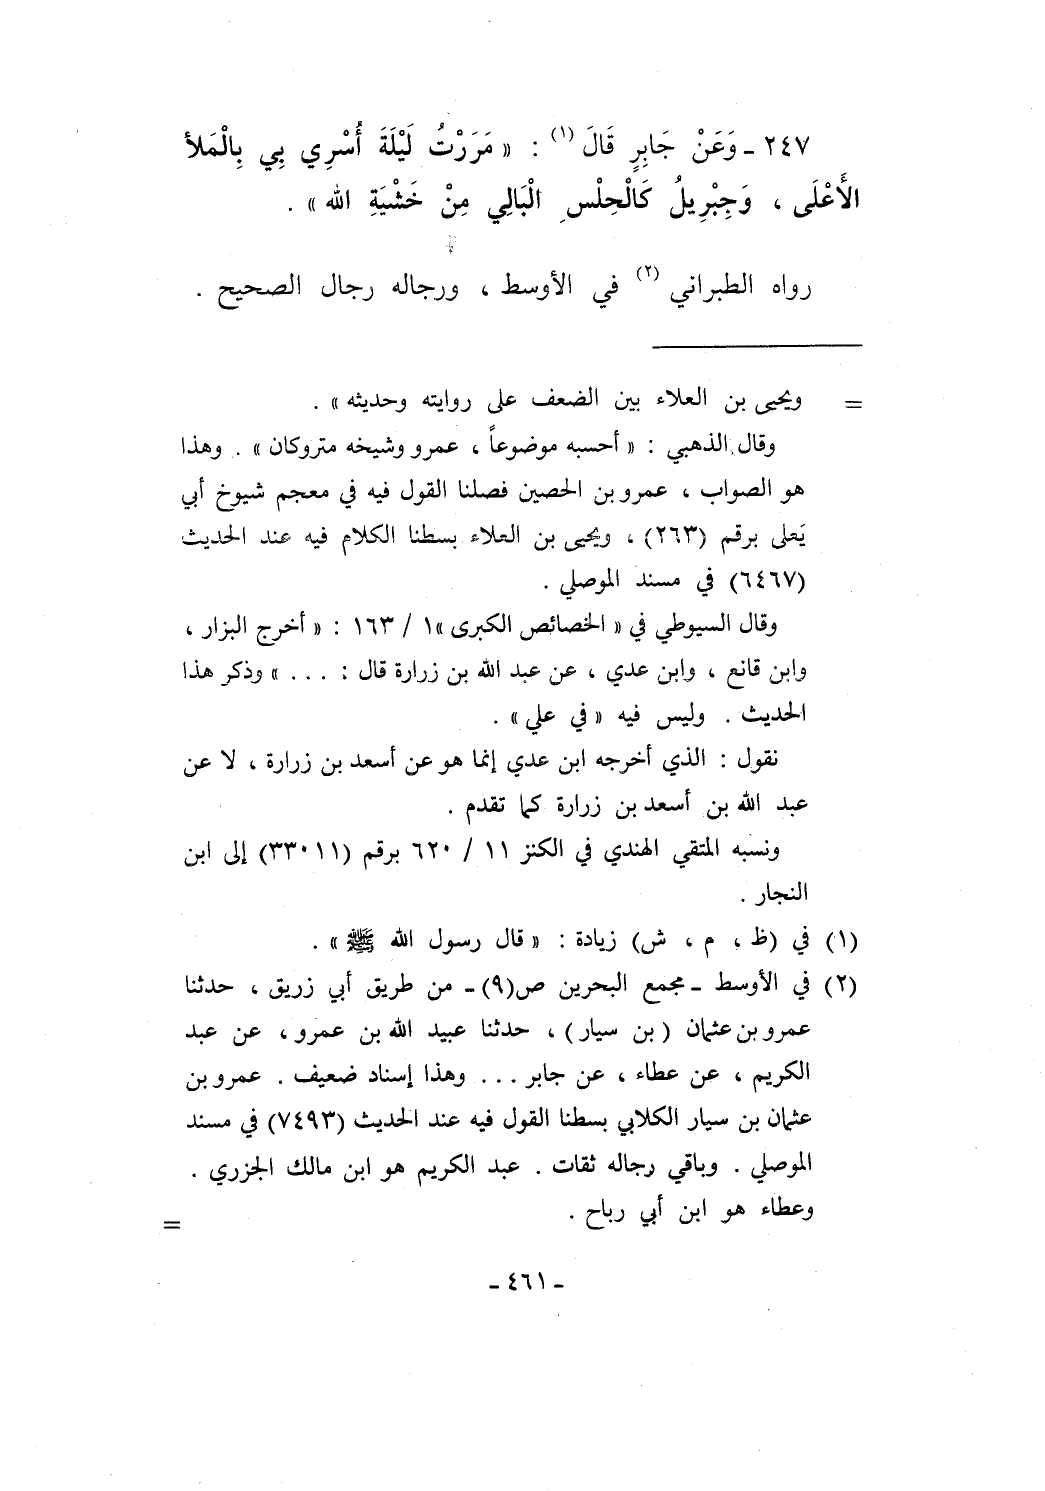 ٢٤٧ ـ وَعَنْ جَابِرٍ قَالَ (١) : « مَرَرْتُ لَيْلَةَ أُسْرِي بِي بِالْمَلأ
الأَعْلَى ، وَجِبْرِيلُ كَالْحِلْسِ الْبَالِي مِنْ خَشْيَةِ الله » .
رواه الطبراني (٢) في الأوسط ، ورجاله رجال الصحيح .
= ويحيى بن العلاء بين الضعف على روايته وحديثه » .
وقال الذهبي : « أحسبه موضوعاً ، عمرو وشيخه متروكان » . وهذا
هو الصواب ، عمرو بن الحصين فصلنا القول فيه في معجم شيوخ أبي
يَعلى برقم (٢٦٣) ، ويحيى بن العلاء بسطنا الكلام فيه عند الحديث
(٦٤٦٧) في مسند الموصلي .
وقال السيوطي في « الخصائص الكبرى »١ / ١٦٣ : « أخرج البزار ،
وابن قانع ، وابن عدي ، عن عبد الله بن زرارة قال : . . . » وذكر هذا
الحديث . وليس فيه « في علي » .
نقول : الذي أخرجه ابن عدي إنما هو عن أسعد بن زرارة ، لا عن
عبد الله بن أسعد بن زرارة كما تقدم .
ونسبه المتقي الهندي في الكنز ١١ / ٦٢٠ برقم (٣٣٠١١) إلى ابن
النجار .
(١) في (ظ ، م ، ش) زيادة : « قال رسول الله ﷺ » .
(٢) في الأوسط ـ مجمع البحرين ص(٩) ـ من طريق أبي زريق ، حدثنا
عمرو بن عثمان ( بن سيار ) ، حدثنا عبيد الله بن عمرو ، عن عبد
الكريم ، عن عطاء ، عن جابر . . . وهذا إسناد ضعيف . عمرو بن
عثمان بن سيار الكلابي بسطنا القول فيه عند الحديث (٧٤٩٣) في مسند
الموصلي . وباقي رجاله ثقات . عبد الكريم هو ابن مالك الجزري .
وعطاء هو ابن أبي رباح . =
ـ ٤٦١ ـ